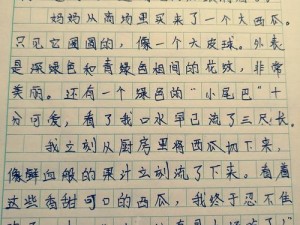 妈妈从商场里买来了一个大西瓜。
只见它圆圆的，像一个大皮球。外表
是深绿色和青绿色相间的花纹，非常
美丽。还有一个绿色的“小尾巴”十
分可爱，看了我口水早已流了三尺长。
我立刻从厨房里将西瓜切下来，
像鲜血般的果汁立刻流了下来。看着
这些香甜可口的西瓜，我终于忍不住